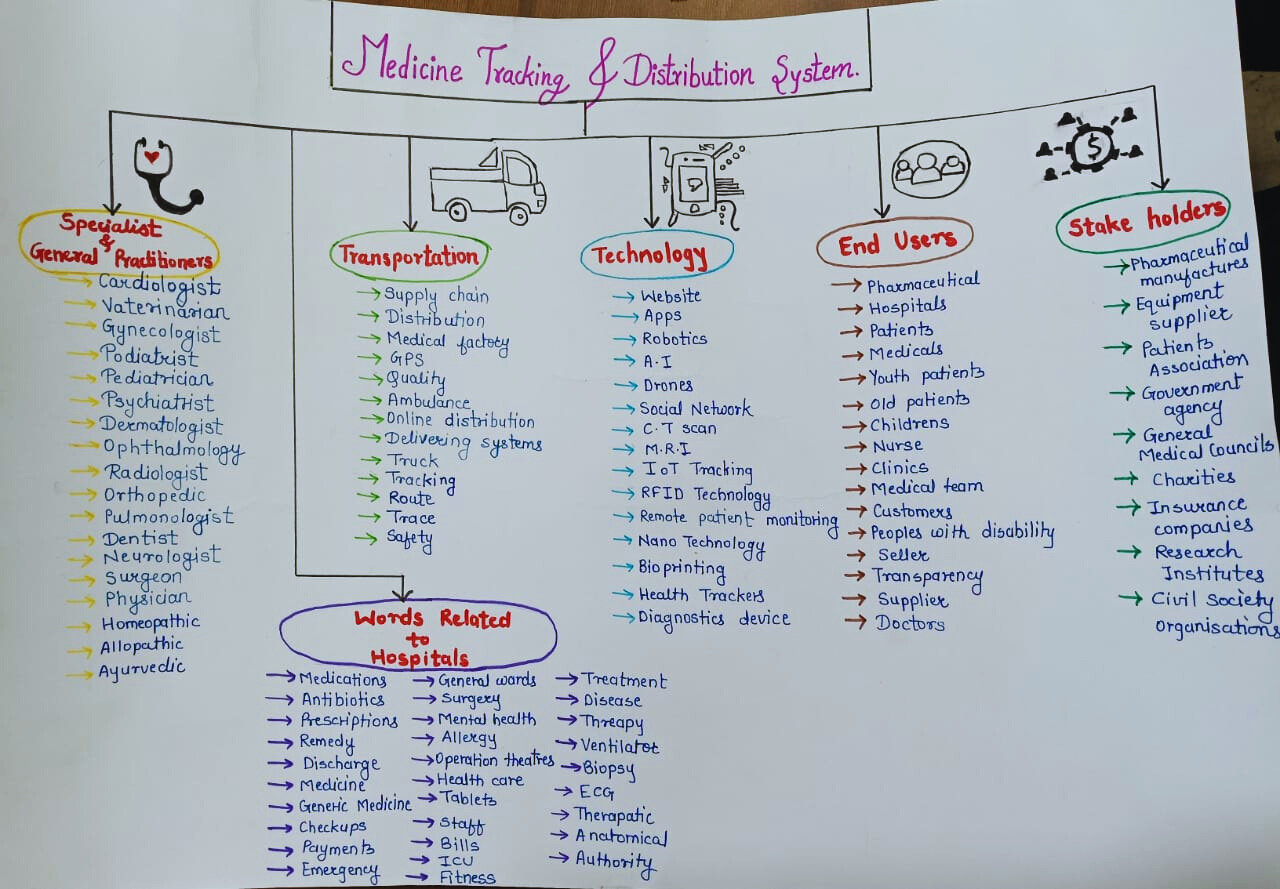 Medicine Tracking & Distribution System.
Specialist
&
General Practitioners
Cardiologist
Vaterinarian
Gynecologist
Podiatrist
Pediatrician
Psychiatrist
Dermatologist
Ophthalmology
Radiologist
Orthopedic
Pulmonologist
Dentist
Neurologist
Surgeon
Physician
Homeopathic
Allopathic
Ayurvedic
Transportation
Supply chain
Distribution
Medical factory
GPS
Quality
Ambulance
Online distribution
Delivering systems
Truck
Tracking
Route
Trace
Safety
Technology
Website
Apps
Robotics
A.I
Drones
Social Network
C.T scan
M.R.I
IoT Tracking
RFID Technology
Remote patient monitoring
Nano Technology
Bioprinting
Health Trackers
Diagnostics device
End Users
Pharmaceutical
Hospitals
Patients
Medicals
Youth patients
Old patients
Childrens
Nurse
Clinics
Medical team
Customers
Peoples with disability
Seller
Transparency
Supplier
Doctors
$
Stake holders
Pharmaceutical
manufactures
Equipment
supplier
Patients
Association
Government
agency
General
Medical Councils
Charities
Insurance
companies
Research
Institutes
Civil Society
organisations
Words Related
to
Hospitals
Medications
Antibiotics
Prescriptions
Remedy
Discharge
Medicine
Generic Medicine
Checkups
Payments
Emergency
General wards
Surgery
Mental health
Allergy
Operation theatres
Health care
Tablets
Staff
Bills
ICU
Fitness
Treatment
Disease
Threapy
Ventilator
Biopsy
ECG
Therapatic
Anatomical
Authority